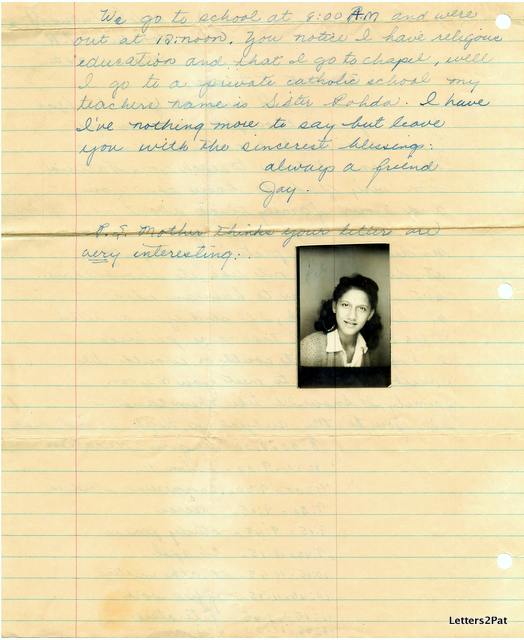 We go to school at 8:00 AM and were
out at 12:noon. You notice I have religious
education and that I go to chapel, well
I go to a private catholic school my
teachers name is Sister Rohda. I have
I've nothing more to say but leave
you with the sincerest blessings:
always a friend
Jay.
P.S. Mother thinks your letter are
very interesting..
Letters2Pat